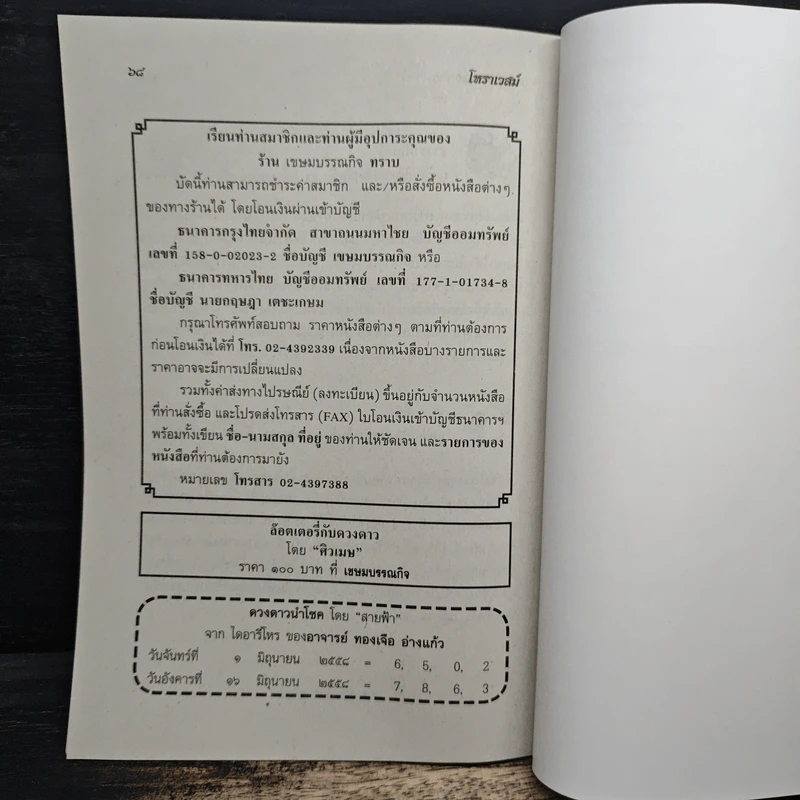 ๖๘
โหราเวสม์
เรียนท่านสมาชิกและท่านผู้มีอุปการะคุณของ
ร้าน เขษมบรรณกิจ ทราบ
บัดนี้ท่านสามารถชำระค่าสมาชิก และ/หรือสั่งซื้อหนังสือต่างๆ
ของทางร้านได้ โดยโอนเงินผ่านเข้าบัญชี
ธนาคารกรุงไทยจำกัด สาขาถนนมหาไชย บัญชีออมทรัพย์
เลขที่ 158-0-02023-2 ชื่อบัญชี เขษมบรรณกิจ หรือ
ธนาคารทหารไทย บัญชีออมทรัพย์ เลขที่ 177-1-01734-8
ชื่อบัญชี นายกฤษฎา เตชะเกษม
กรุณาโทรศัพท์สอบถาม ราคาหนังสือต่างๆ ตามที่ท่านต้องการ
ก่อนโอนเงินได้ที่ โทร. 02-4392339 เนื่องจากหนังสือบางรายการและ
ราคาอาจจะมีการเปลี่ยนแปลง
รวมทั้งค่าส่งทางไปรษณีย์ (ลงทะเบียน) ขึ้นอยู่กับจำนวนหนังสือ
ที่ท่านสั่งซื้อ และโปรดส่งโทรสาร (FAX) ใบโอนเงินเข้าบัญชีธนาคารฯ
พร้อมทั้งเขียน ชื่อ-นามสกุล ที่อยู่ ของท่านให้ชัดเจน และรายการของ
หนังสือที่ท่านต้องการมายัง
หมายเลข โทรสาร 02-4397388
ล๊อตเตอรี่กับดวงดาว
โดย “ศิวเมษ”
ราคา ๑๐๐ บาท ที่ เขษมบรรณกิจ
ดวงดาวนำโชค โดย “สายฟ้า”
จาก ไดอารี่โหร ของอาจารย์ ทองเจือ อ่างแก้ว
วันจันทร์ที่ ๑ มิถุนายน ๒๕๕๘ = 6, 5, 0, 2
วันอังคารที่ ๑๖ มิถุนายน ๒๕๕๘ = 7, 8, 6, 3